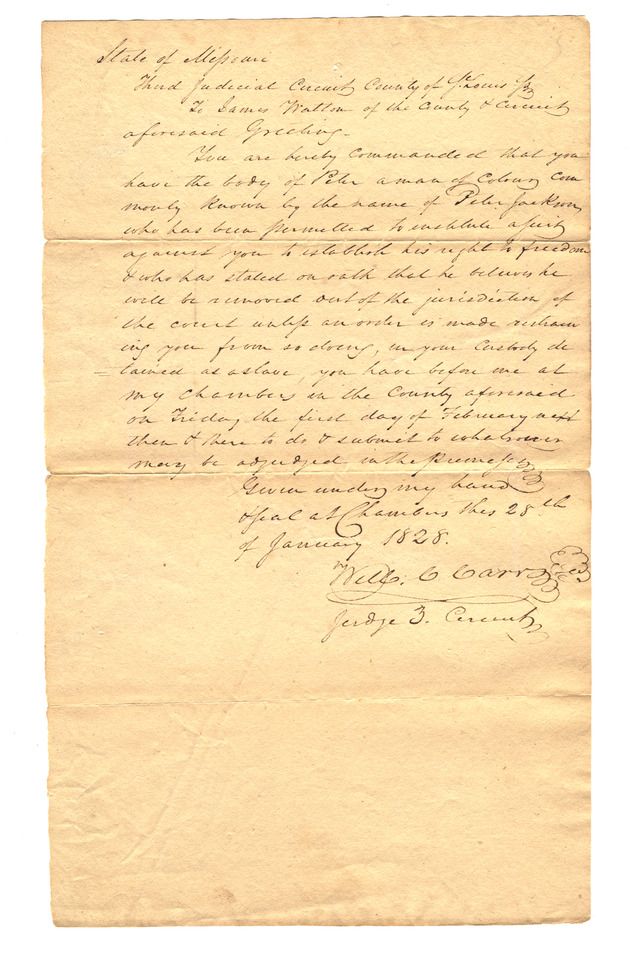 State of Missouri
Third Judicial Circuit County of St. Louis
To James Walton of the County & Circuit
aforesaid Greeting
You are hereby Commanded that you
have the body of Peter a man of Colour Com
monly known by the name of Peter Jackson
who has been permitted to institute a suit
against you to establish his right to freedom
& who has stated on oath that he believes he
will be removed out of the jurisdiction of
the court unless an order is made restrain
ing you from so doing, in your Custody de
tained as a slave, you have before me at
my chambers in the County aforesaid
on Friday the first day of February next
then & there to do & submit to whatsoever
may be adjudged in the premises
Given under my hand
& seal at Chambers this 28th
of January 1828.
Will. C Carr
Judge 3. Circuit